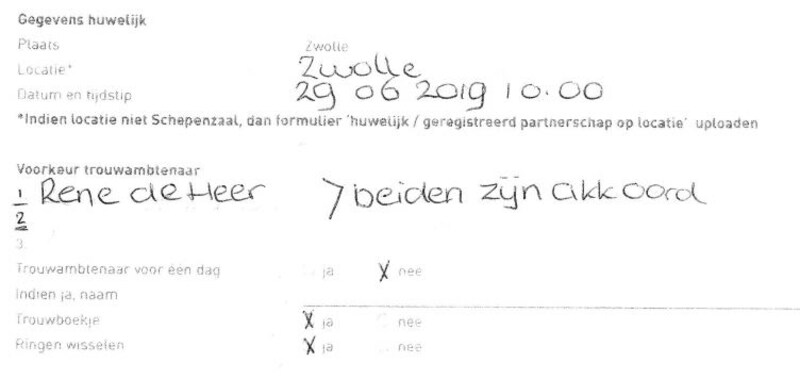 Gegevens huwelijk
Plaats Zwolle
Locatie* Zwolle
Datum en tijdstip 29 06 2019 10.00
*Indien locatie niet Schepenzaal, dan formulier 'huwelijk / geregistreerd partnerschap op locatie' uploaden
Voorkeur trouwambtenaar
1 Rene de Heer > beiden zijn akkoord
2
3.
Trouwambtenaar voor één dag ja X nee
Indien ja, naam
Trouwboekje X ja nee
Ringen wisselen X ja nee